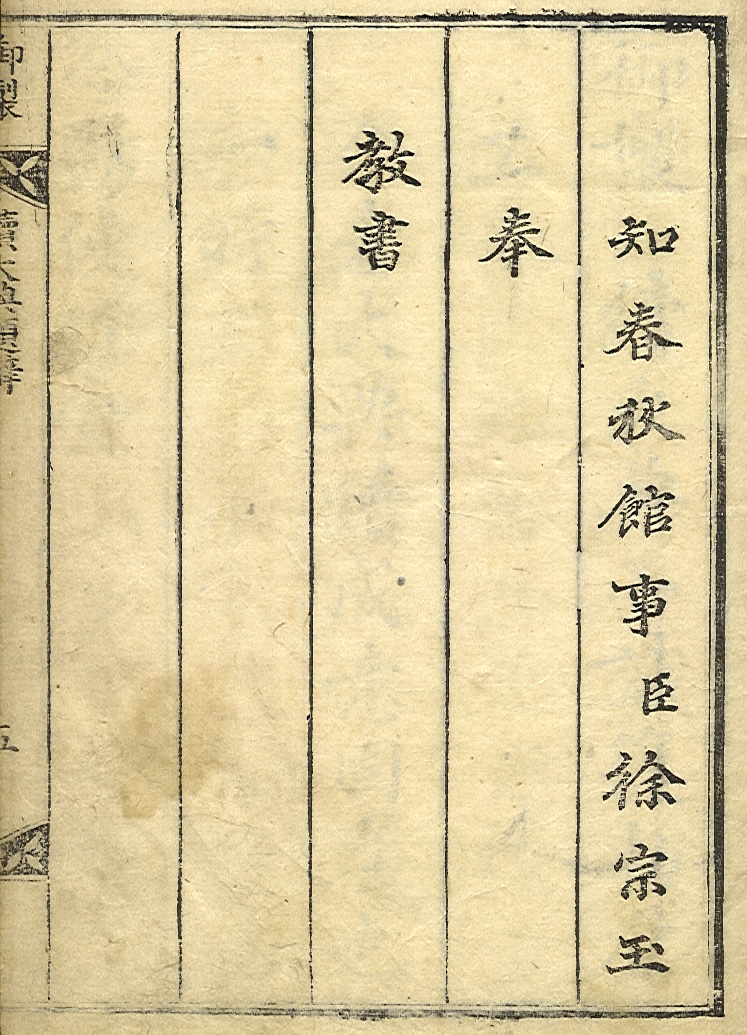 知春秋館事臣徐宗玉
奉
教書
御製
續大典題辭
五